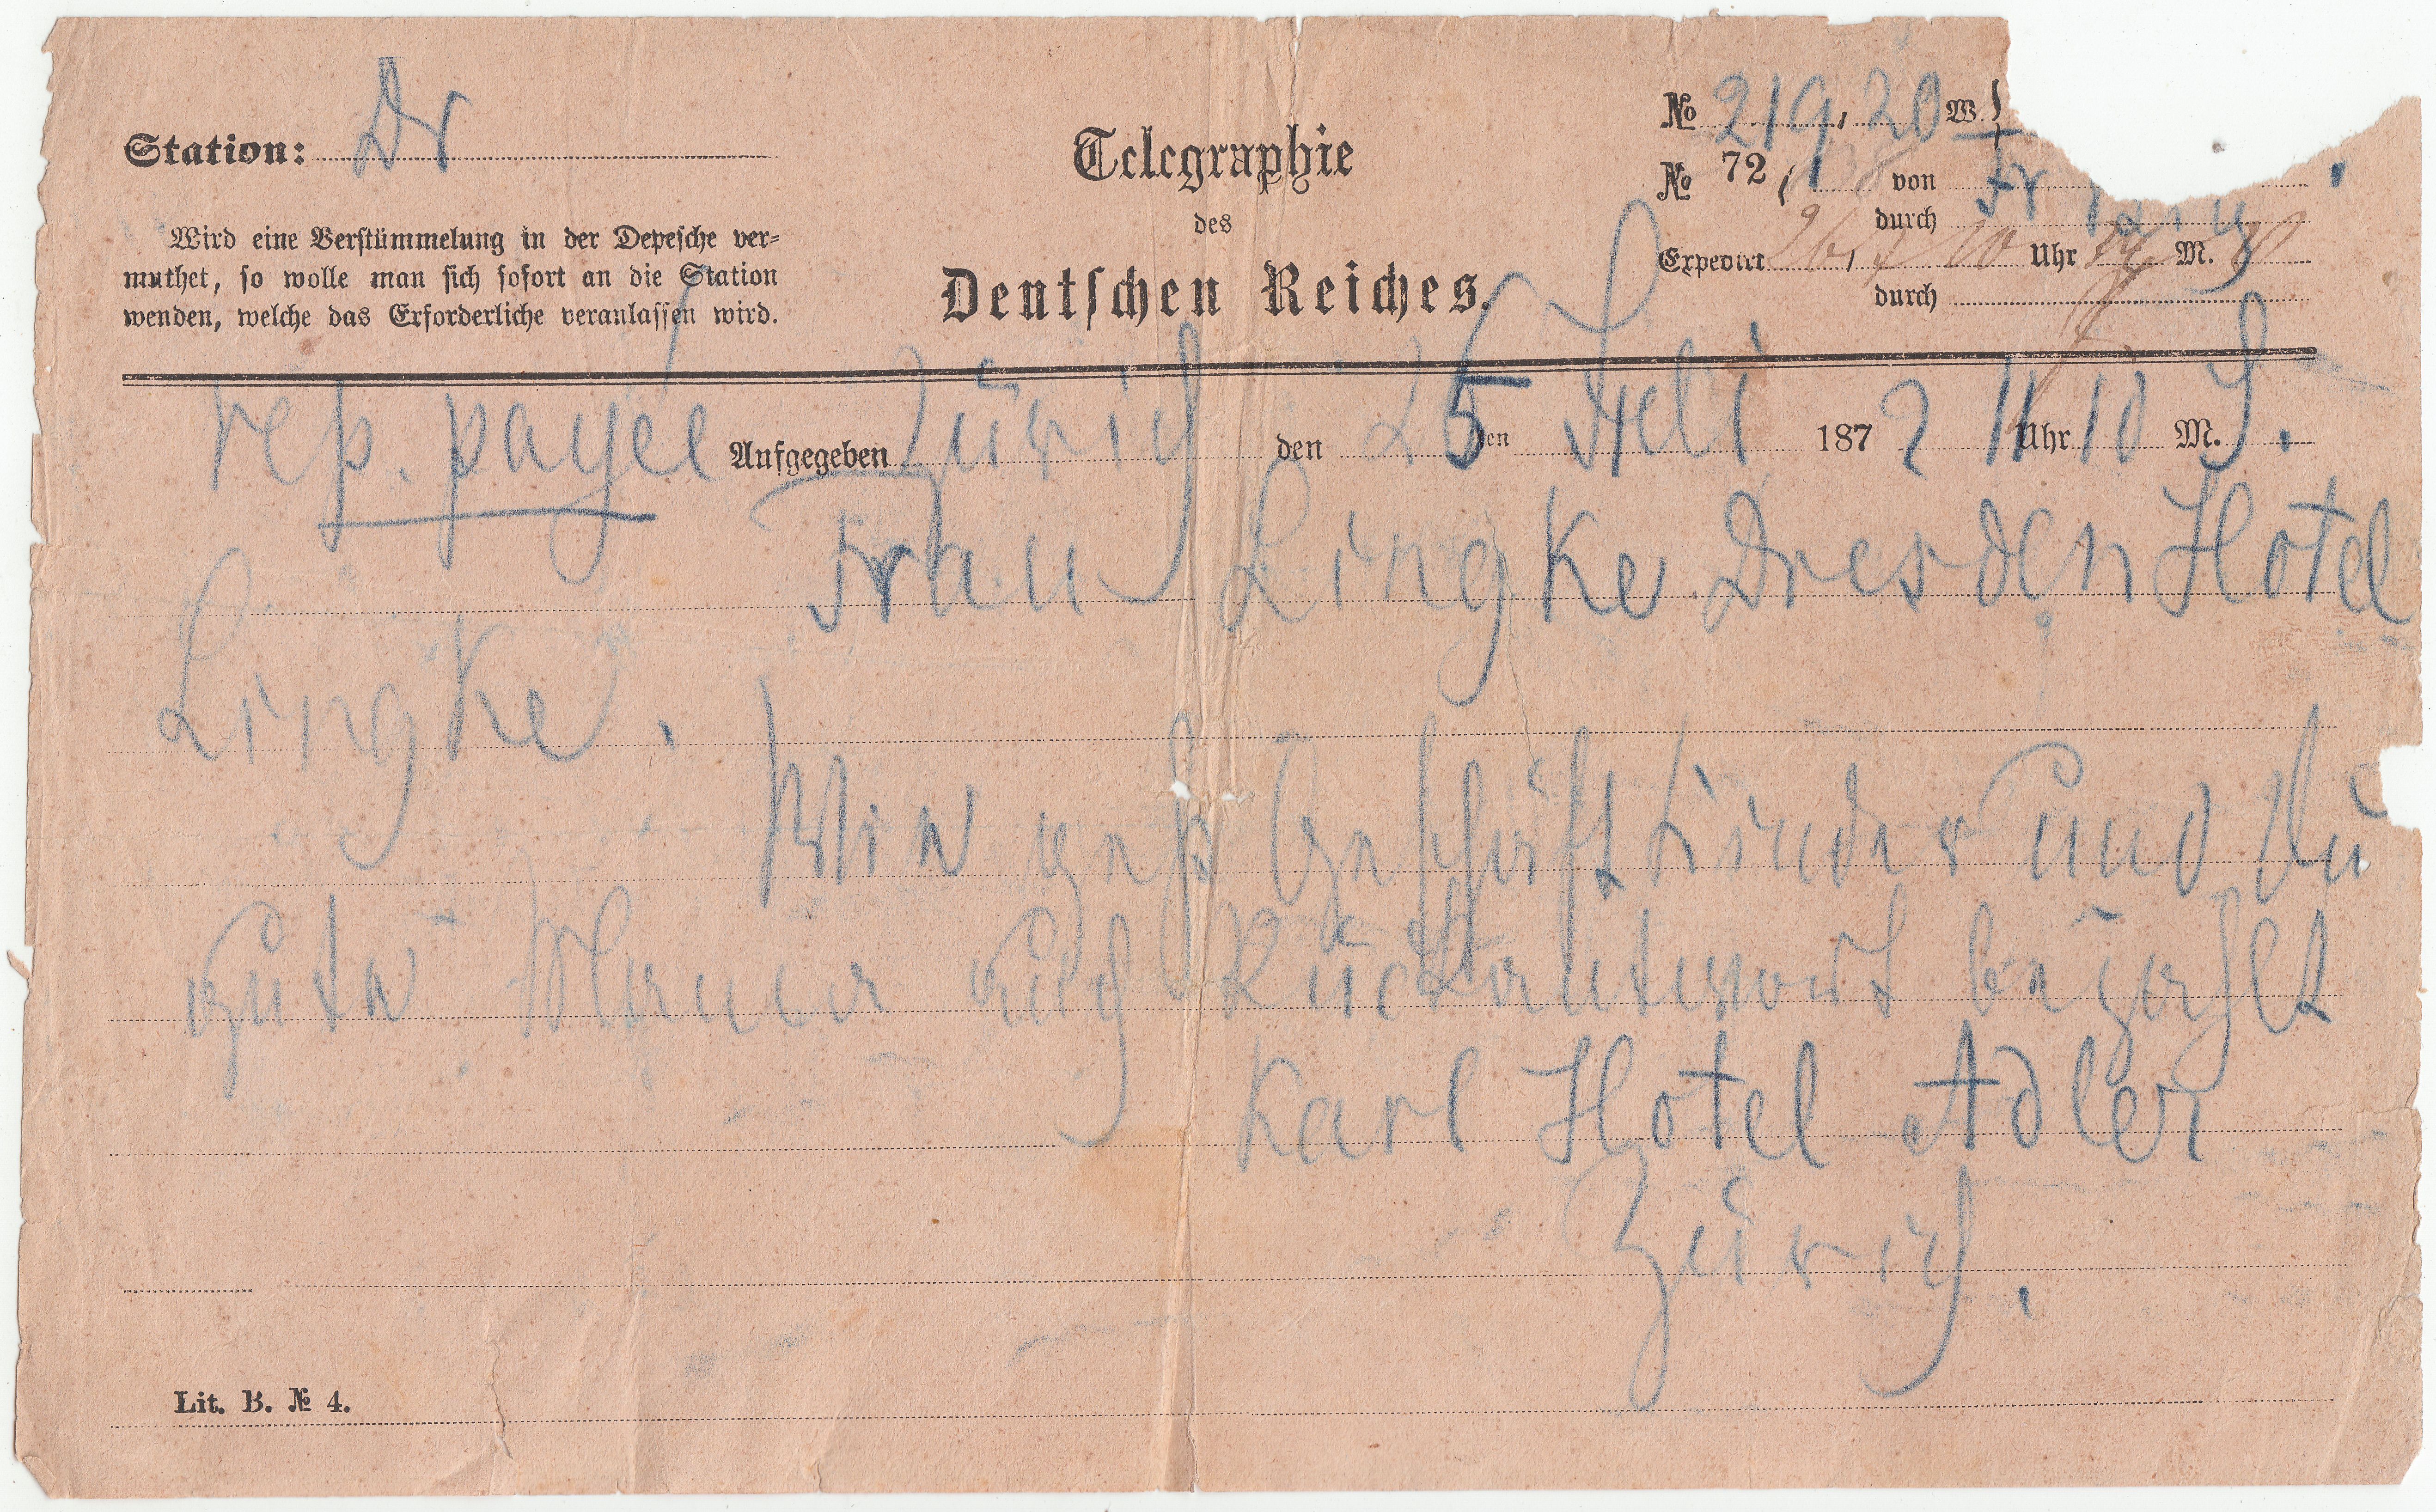 Station: Dr
Wird eine Verstümmelung in der Depesche ver-
muthet, so wolle man sich sofort an die Station
wenden, welche das Erforderliche veranlassen wird.
Telegraphie
des
Deutschen Reiches.
No 219, 20 W
No 72, von
durch
Expedirt 26, 7 10 Uhr M.
durch
rép. payée Aufgegeben Zürich den 25 en Juli 1872 11 Uhr 10 M.
Frau Lingke Dresden Hotel
Lingke.
Wie geht Geschäft Kinder und Du
gute Mama auch Rückantwort bezahlt
Karl Hotel Adler
Zürich.
Lit. B. No 4.